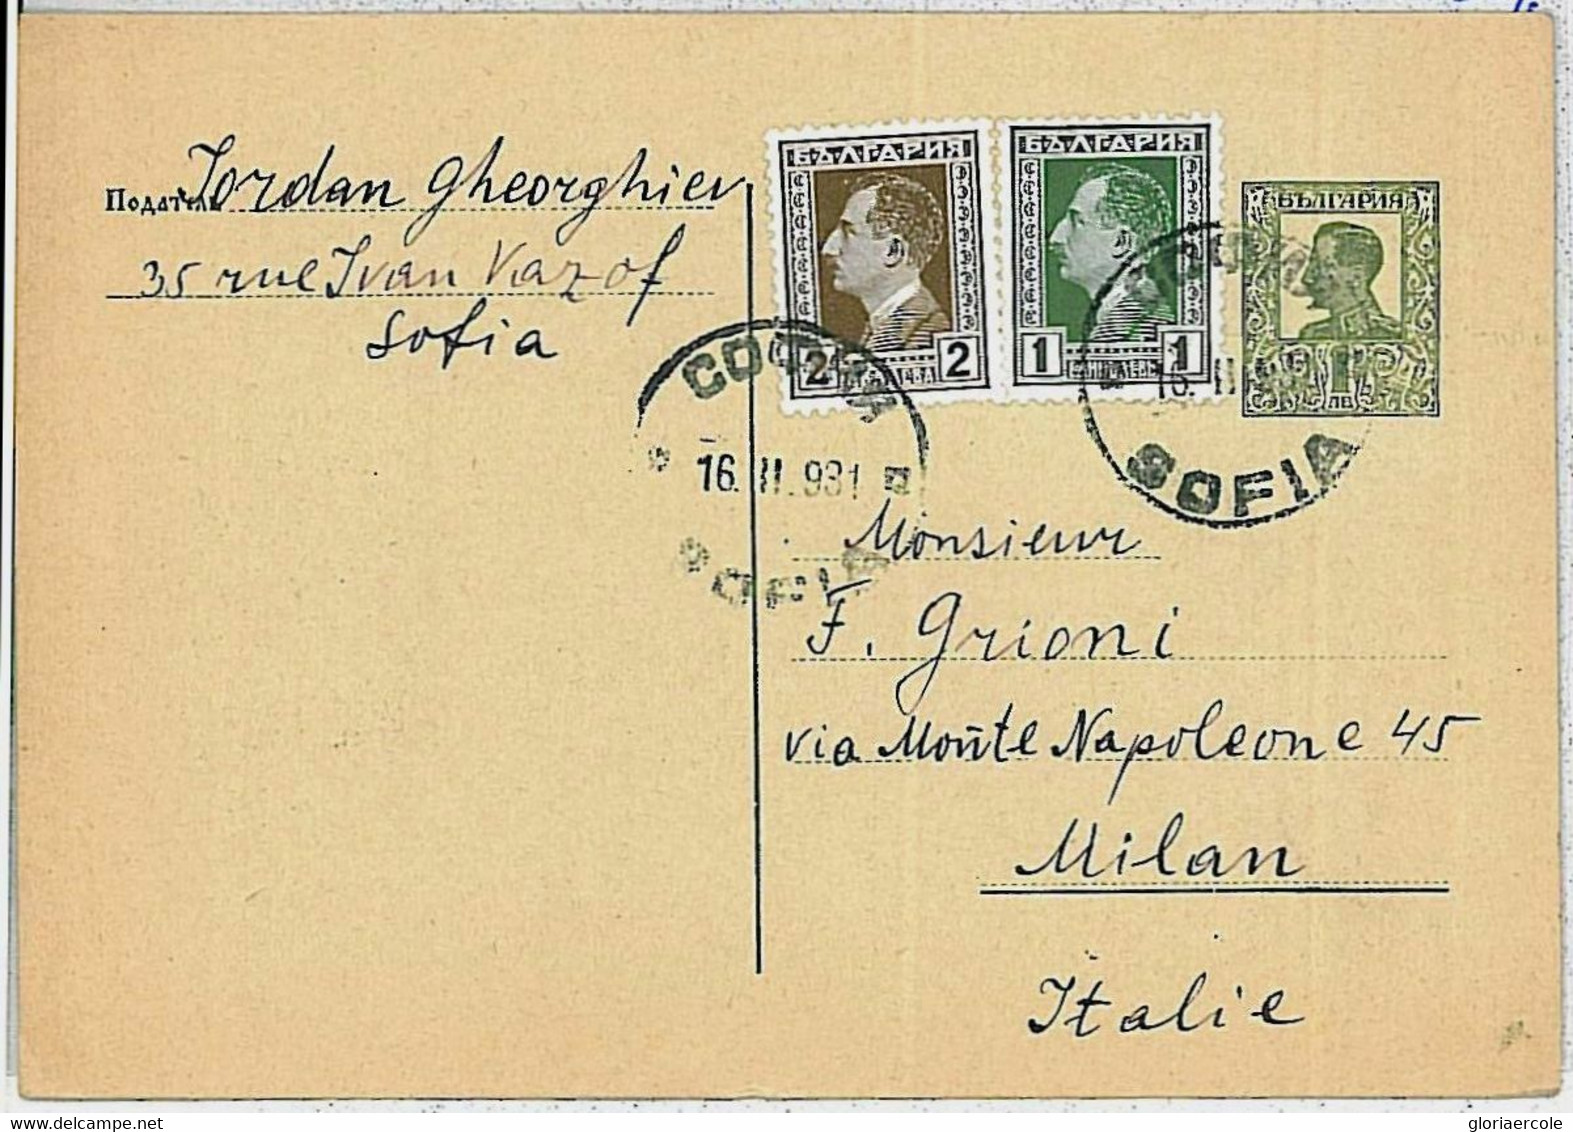 Податель Iordan Gheorghiev
35 rue Ivan Vazof
Sofia
БЪЛГАРИЯ
2 2
БЪЛГАРИЯ
1 1
БЪЛГАРИЯ
1
ЛВ
СОФИЯ
16. II. 931
SOFIA
16. II
SOFIA
Monsieur
F. Grioni
via Monte Napoleone 45
Milan
Italie
delcampe.net
gloriaercole